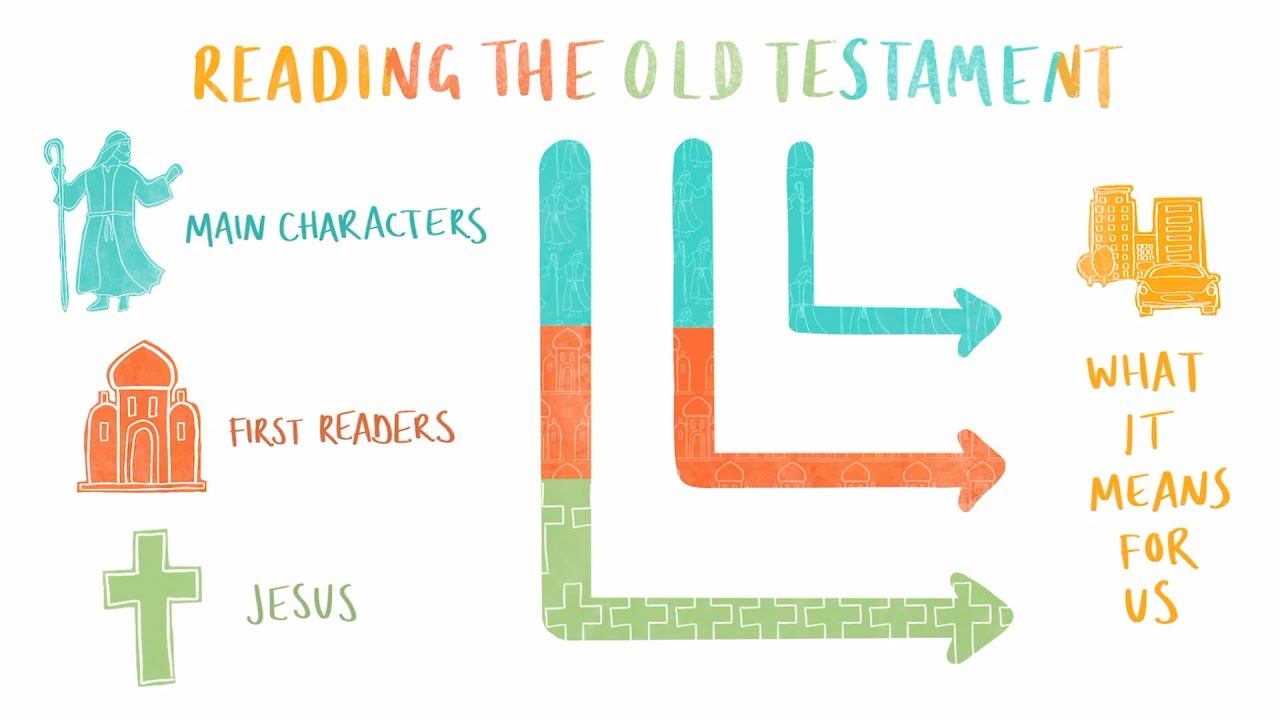 READING THE OLD TESTAMENT
MAIN CHARACTERS
FIRST READERS
JESUS
WHAT
IT
MEANS
FOR
US